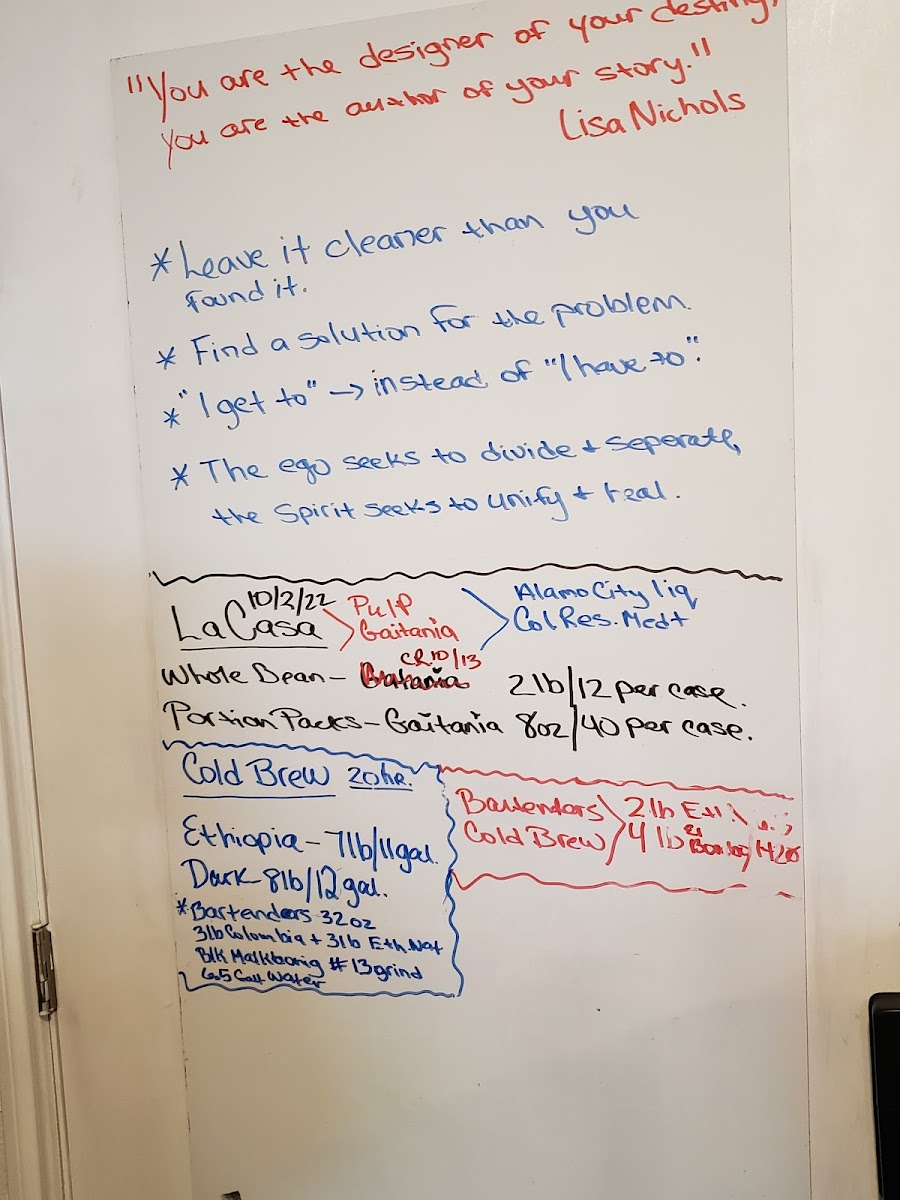 "You are the designer of your destiny,
you are the author of your story."
Lisa Nichols
* Leave it cleaner than you
found it.
* Find a solution for the problem.
* "I get to" → instead of "I have to".
* The ego seeks to divide + seperate,
the Spirit seeks to unify + heal.
10/2/22
LaCasa
Pulp
Gaitania
Alamo City liq
Col Res. Med+
CR 10/13
Whole Bean - 2lb/12 per case.
Portion Packs - Gaitania 8oz/40 per case.
Cold Brew 20hr.
Ethiopia - 7lb/11gal.
Dark - 8lb/12 gal.
* Bartenders 32oz
3lb Colombia + 3lb Eth. Nat
Blk #13 grind
6.5 Water
Bartenders 2lb Eth
Cold Brew 4lb